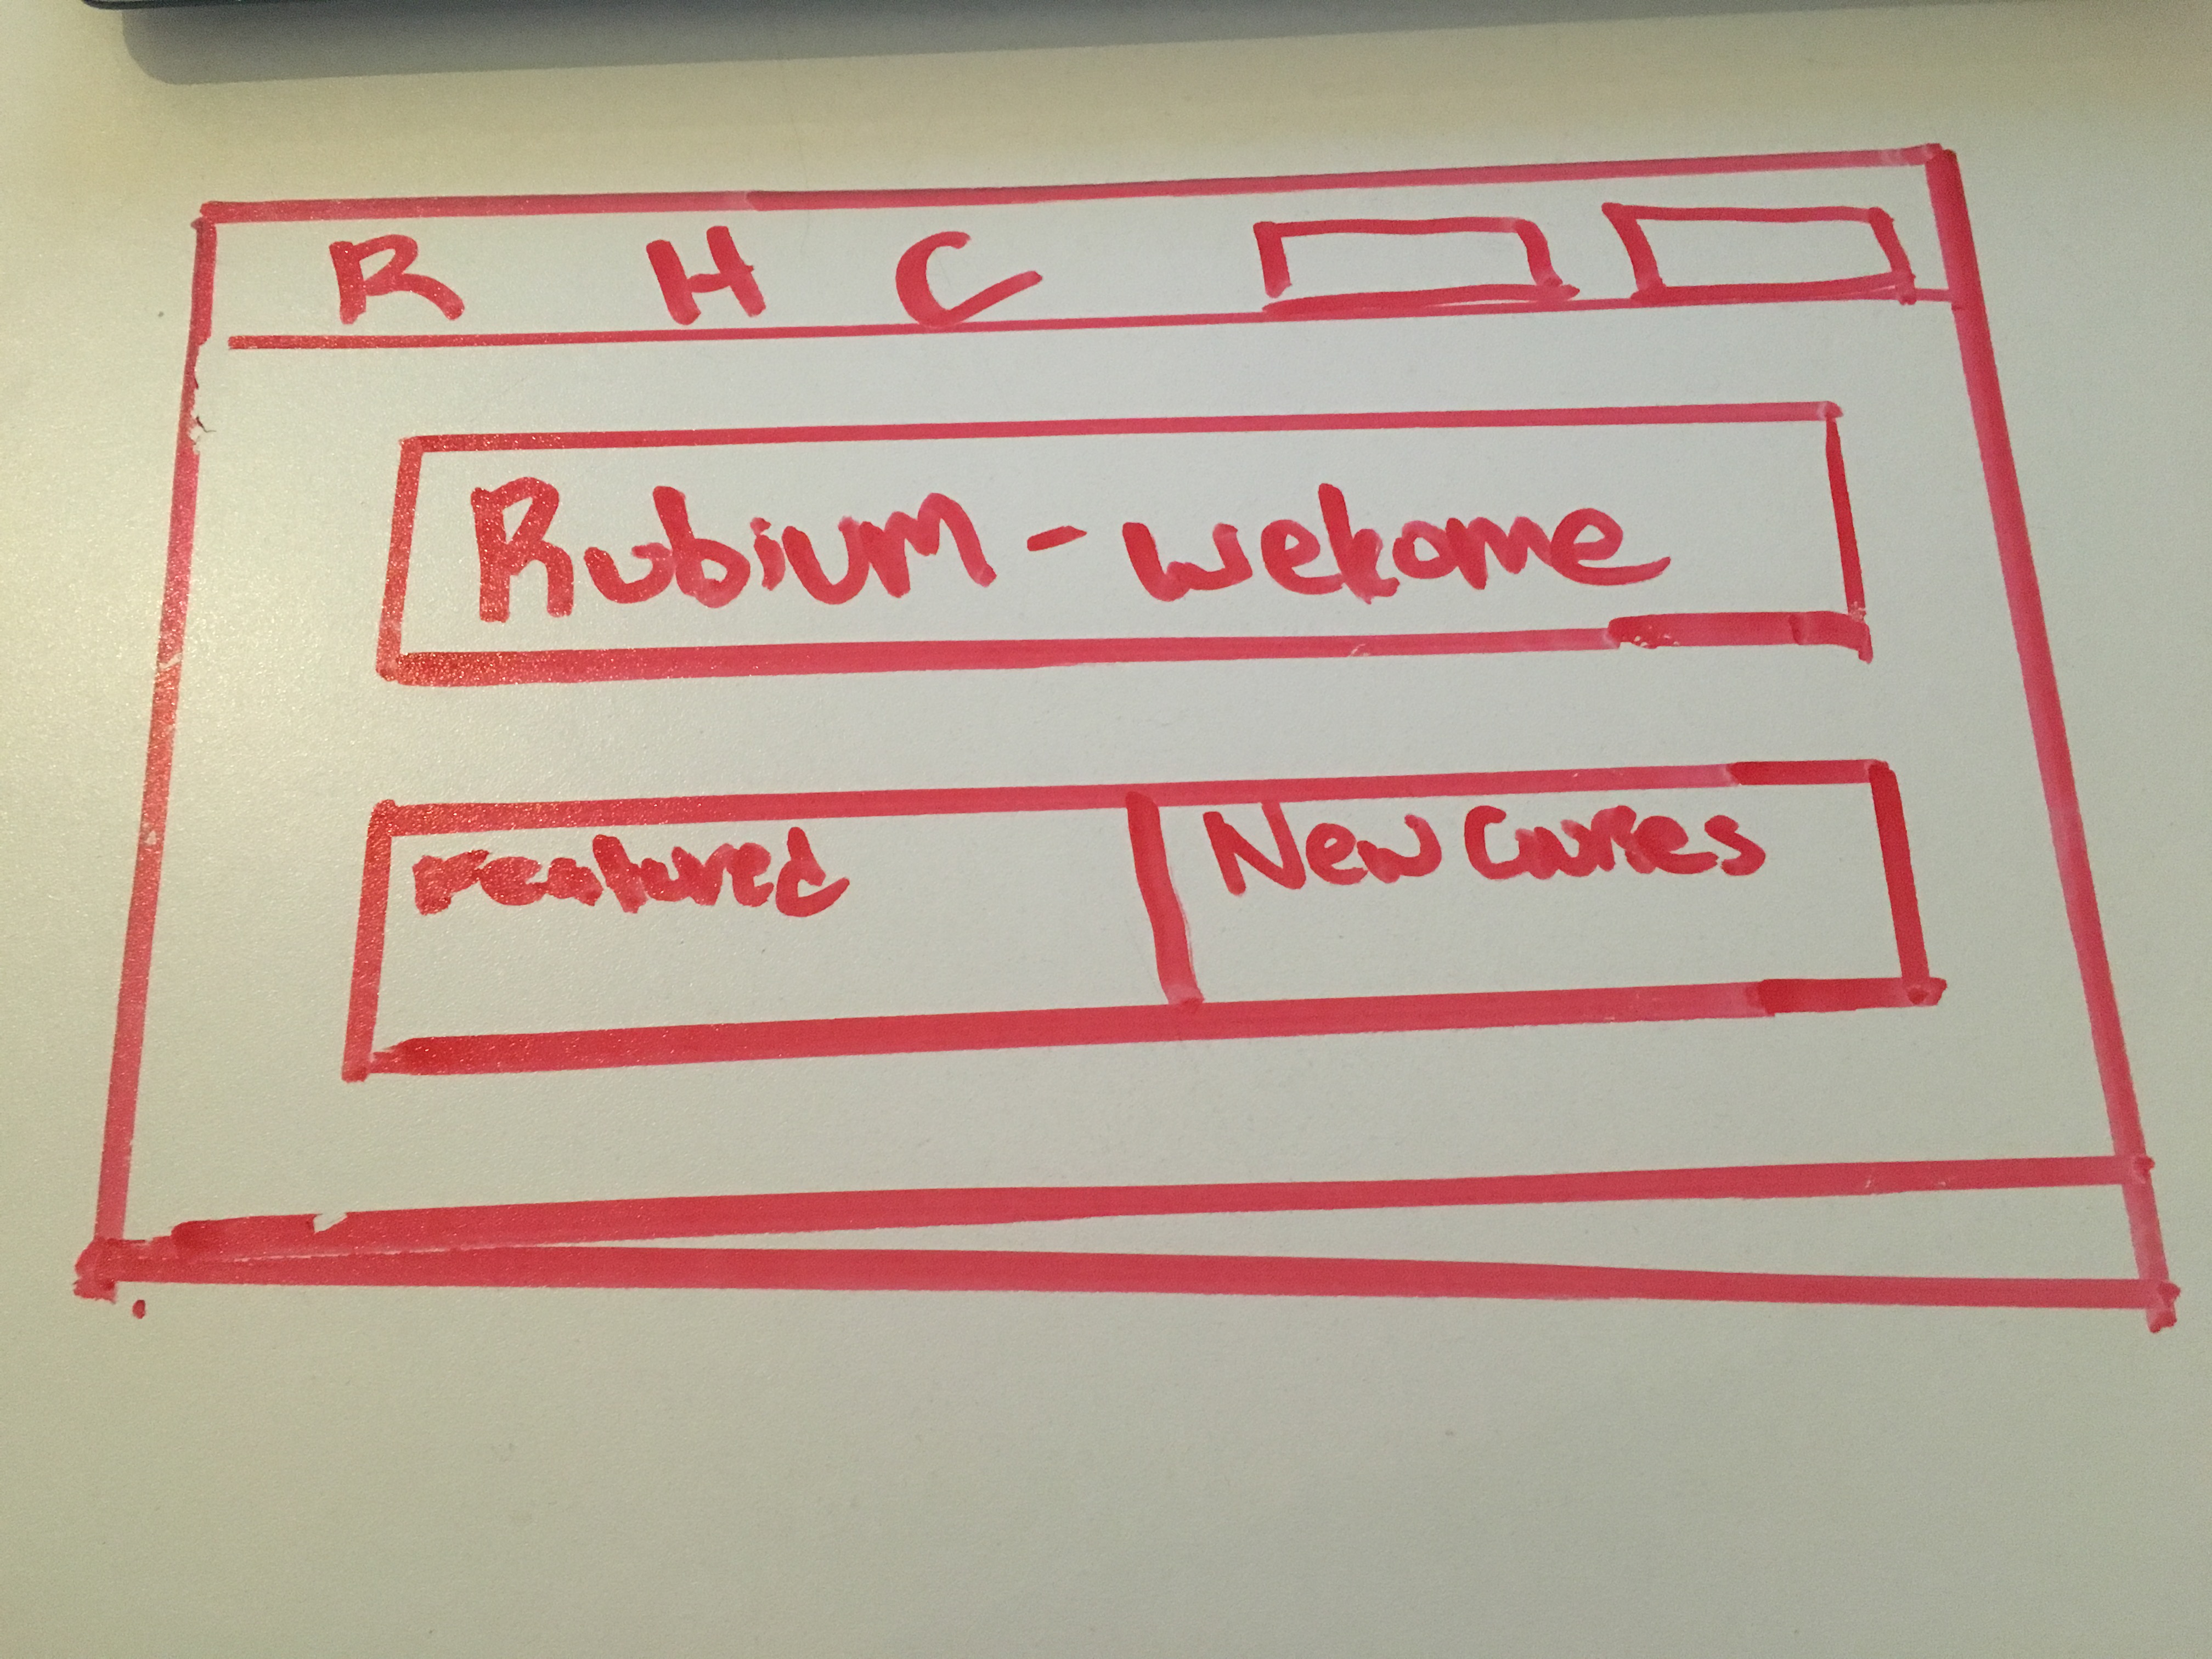 R H C
Rubium - welcome
Featured
New